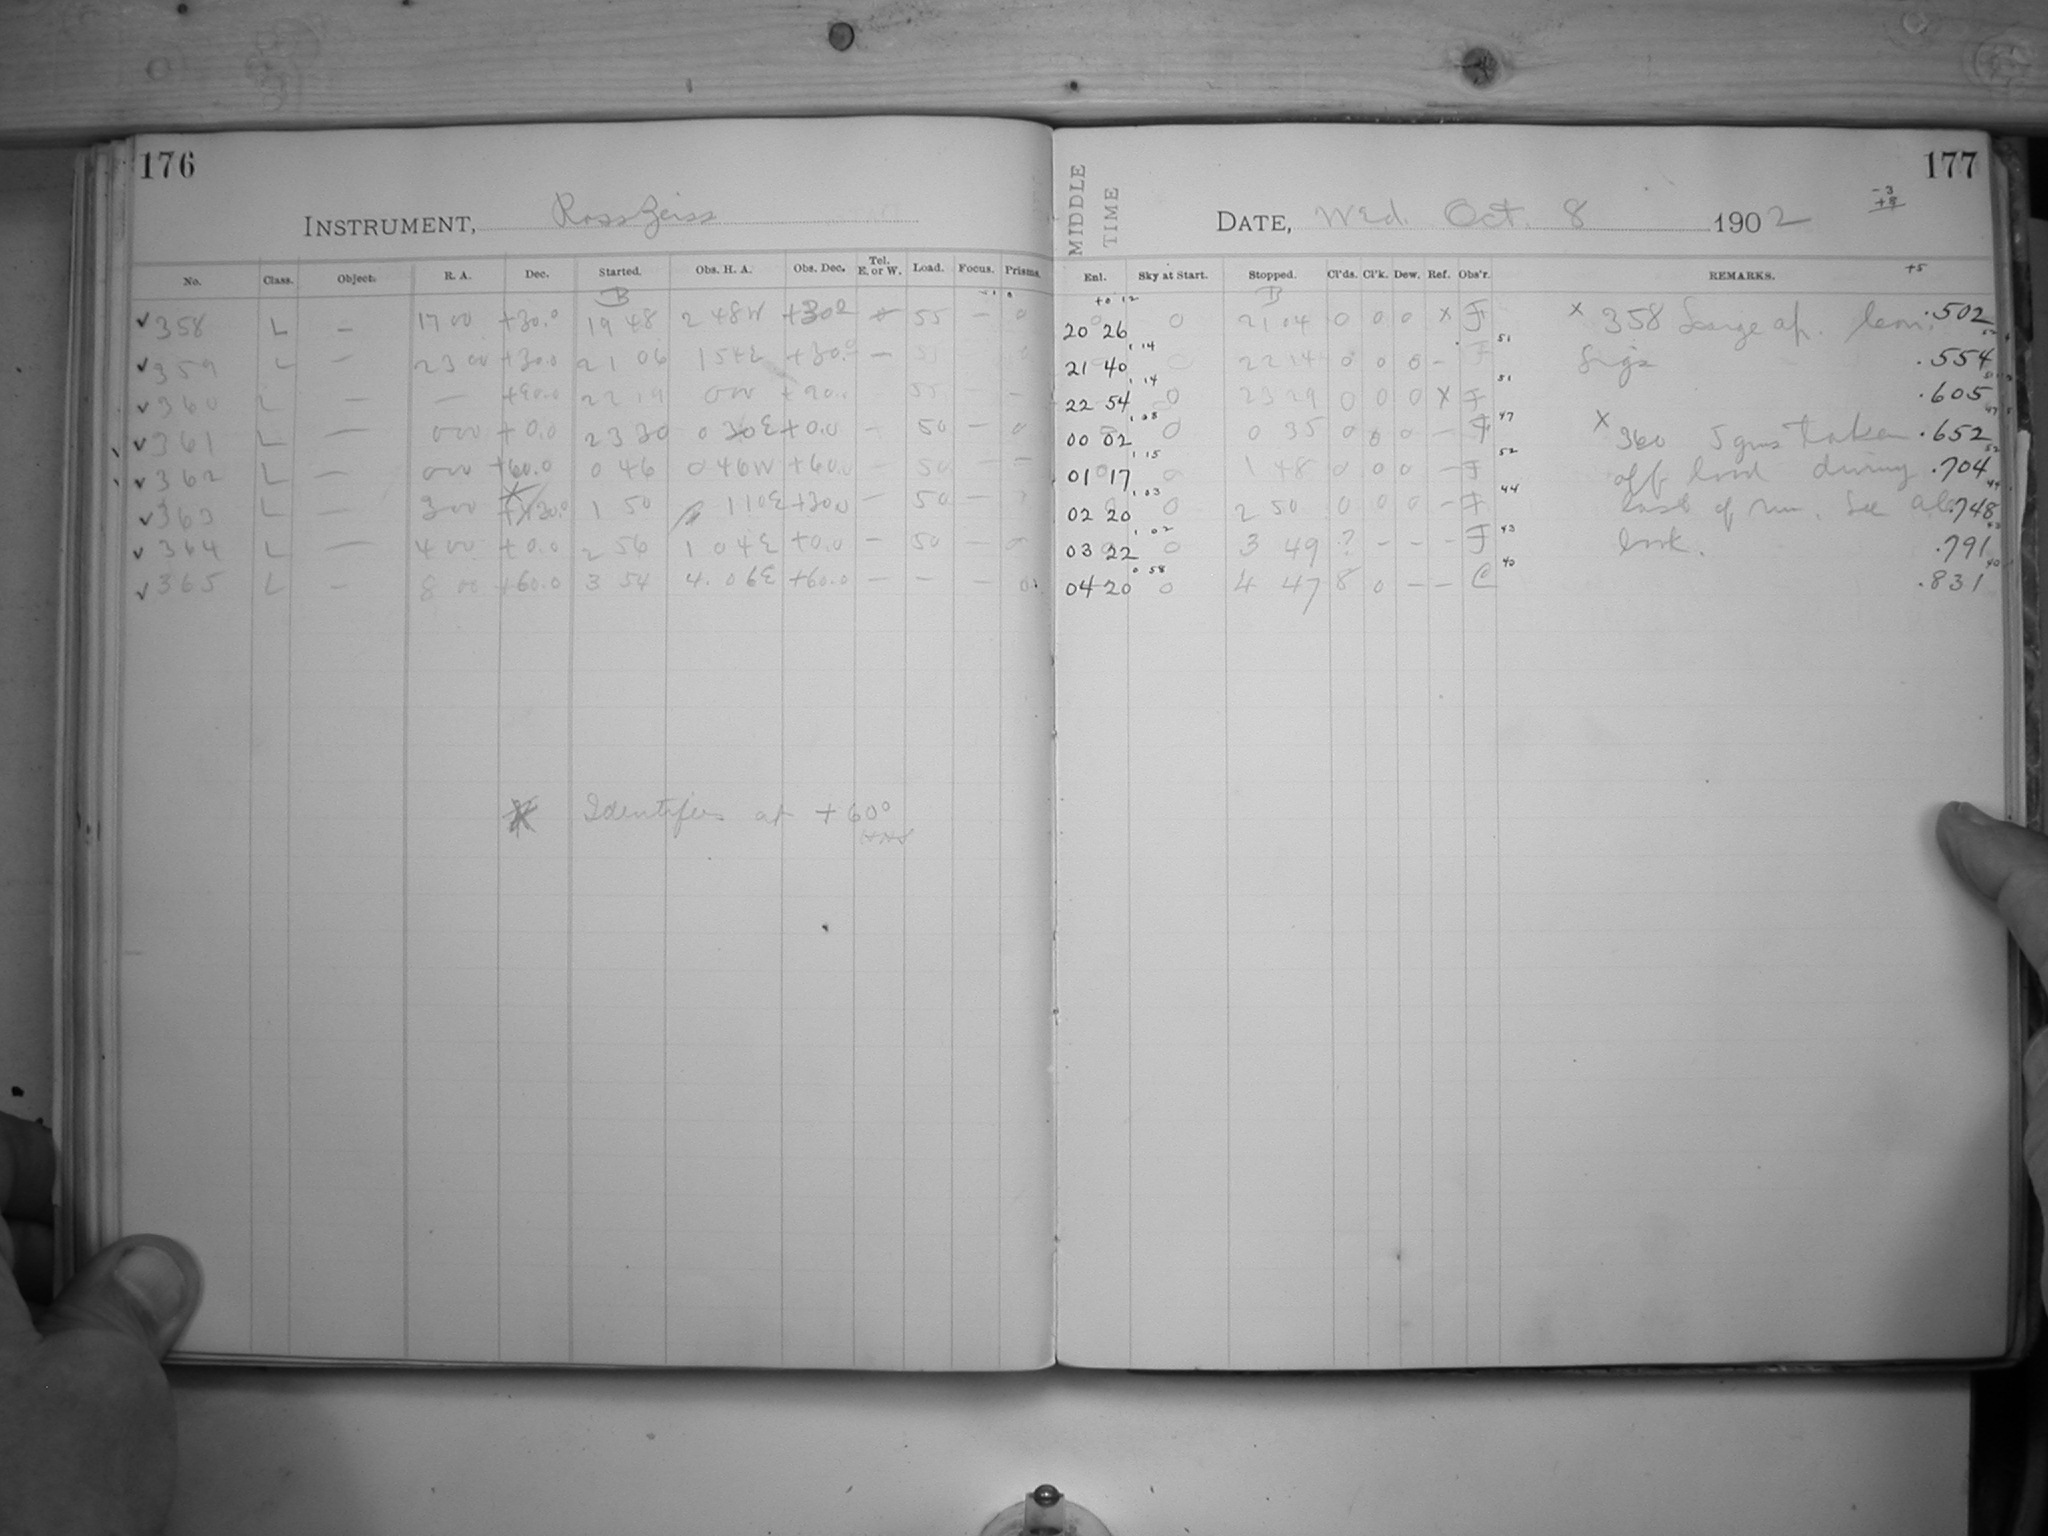 176
INSTRUMENT, Ross Zeiss
No. Class. Object. R. A. Dec. Started. Obs. H. A. Obs. Dec. Tel. E. or W. Load. Focus. Prisms.
B
✓358 L — 17 00 +30.0 19 48 2 48W 55 — 0
✓359 L — 23 00 +30.0 21 06 1 54E +30.0 —
✓360 L — — +90.0 22 19 0 00 +90.0 55 —
✓361 L — 0 00 +0.0 23 30 0 30E +0.0 — 50 — 0
✓362 L — 0 00 +60.0 0 46 0 46W +60.0 — 50 — —
✓363 L — 3 00 +30.0 1 50 1 10E +30.0 — 50 —
✓364 L — 4 00 +0.0 2 56 1 04E +0.0 — 50 — 0
✓365 L — 8 00 +60.0 3 54 4.06E +60.0 — — — 0
Identifies at +60°
177
MIDDLE TIME
DATE, Wed. Oct. 8 1902
-3
+8
+5
Enl. Sky at Start. Stopped. Cl'ds. Cl'k. Dew. Ref. Obs'r. REMARKS.
+0 12 B
20 26 0 21 04 0 0 0 X F X 358 Large ap. .502
1 14 51
21 40 0 22 14 0 0 0 — F .554
1 14 51
22 54 0 23 29 0 0 0 X F .605
1 08 47
00 02 0 0 35 0 0 0 — F X 360 5 gms taken .652
1 15 52
01 17 0 1 48 0 0 0 — F off load during .704
1 03 44
02 20 0 2 50 0 0 0 — F last of run. See .748
1 02 43
03 22 0 3 49 ? — — — F book. .791
0 58 40
04 20 0 4 47 8 0 — — C .831